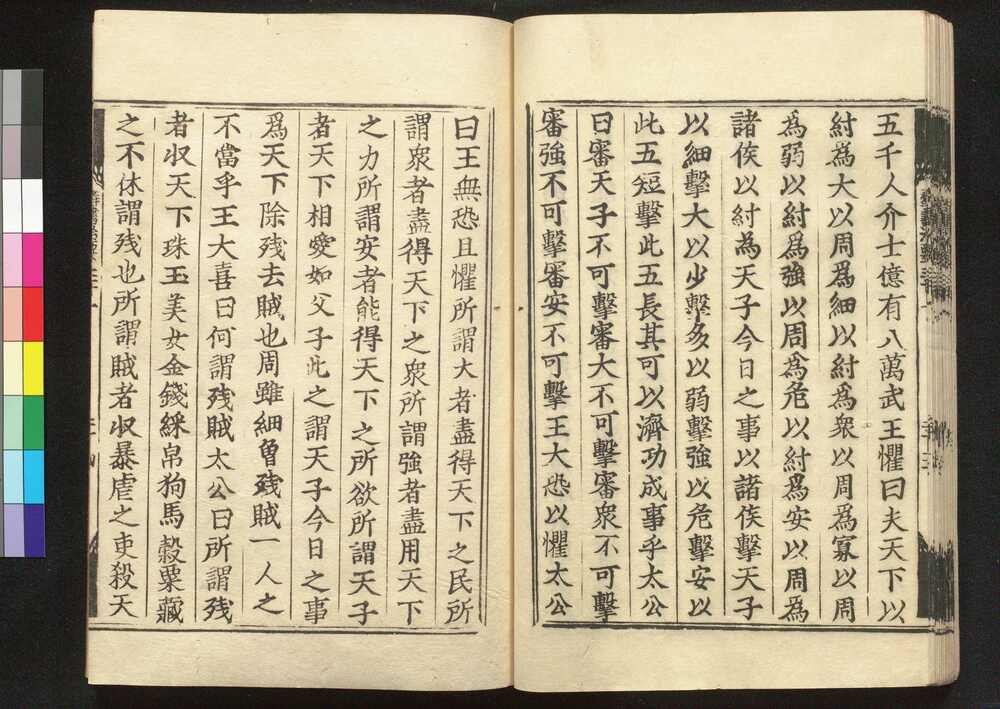 五千人介士億有八萬武王懼曰夫天下以
紂為大以周爲細以紂爲衆以周爲寡以周
爲弱以紂爲強以周爲危以紂爲安以周爲
諸侯以紂為天子今日之事以諸侯擊天子
以細擊大以少擊多以弱擊強以危擊安以
此五短擊此五長其可以濟功成事乎太公
曰審天子不可擊審大不可擊審衆不可擊
審強不可擊審安不可擊王大恐以懼太公
曰王無恐且懼所謂大者盡得天下之民所
謂衆者盡得天下之衆所謂強者盡用天下
之力所謂安者能得天下之所欲所謂天子
者天下相愛如父子此之謂天子今日之事
爲天下除残去賊也周雖細曽残賊一人之
不當乎王大喜曰何謂残賊太公曰所謂残
者収天下珠玉美女金錢綵帛狗馬穀粟藏
之不休謂残也所謂賊者収暴虐之吏殺天